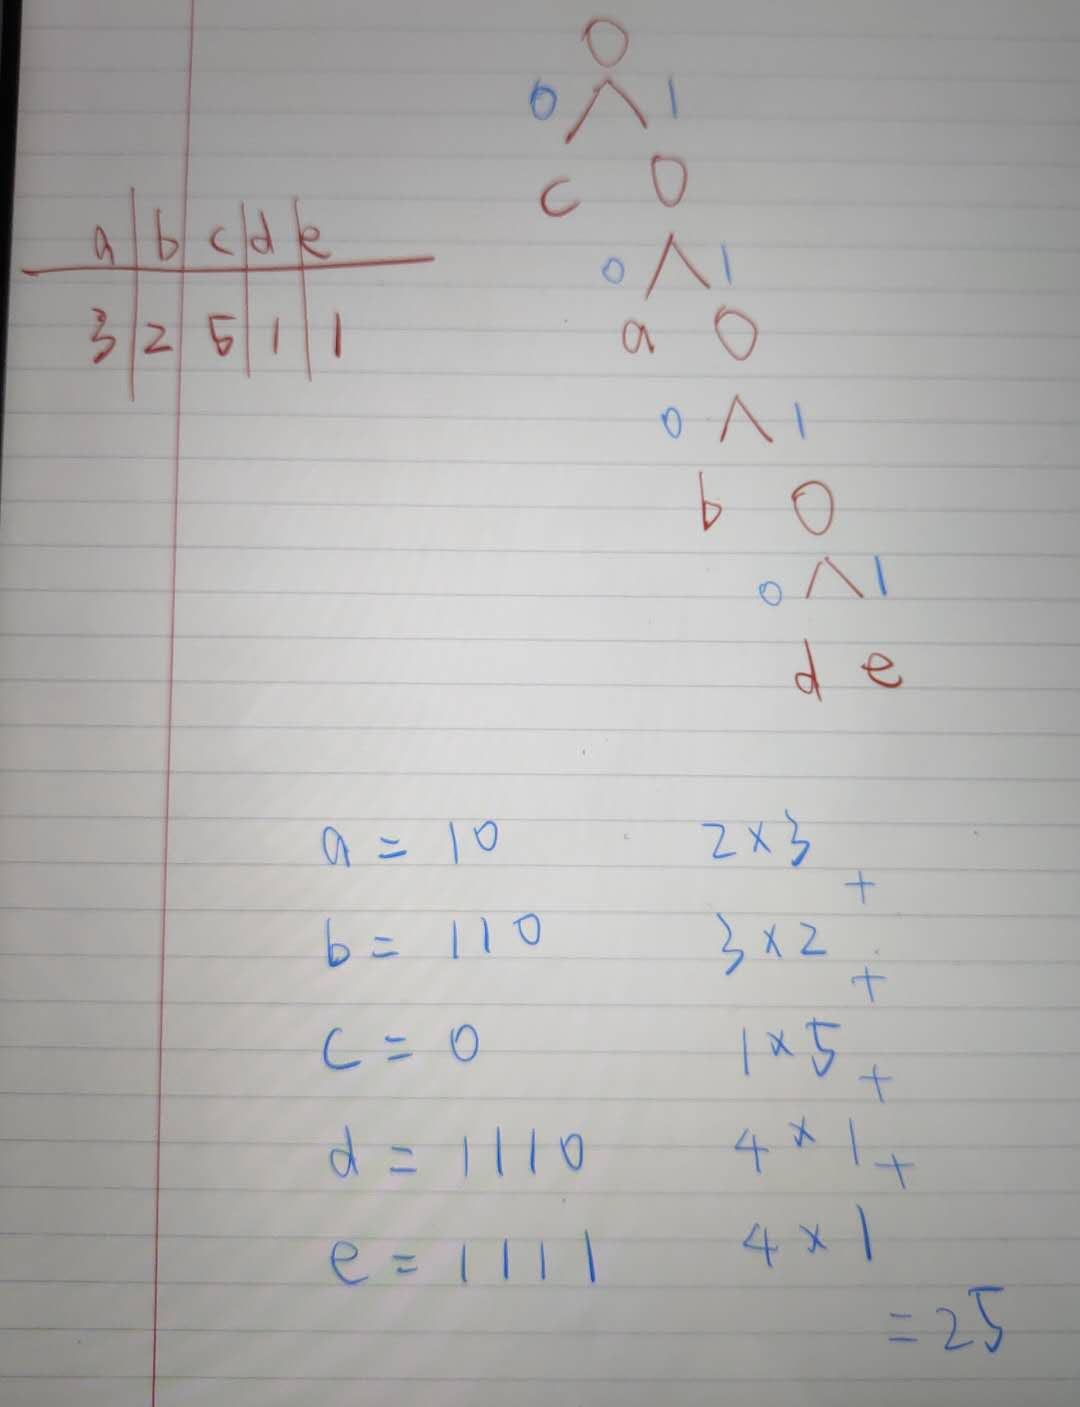 O
0 1
c O
a b c d e
0 1
3 2 5 1 1
a O
0 1
b O
0 1
d e
a = 10 2 × 3
+
b = 110 3 × 2
+
c = 0 1 × 5
+
d = 1110 4 × 1
+
e = 1111 4 × 1
= 25